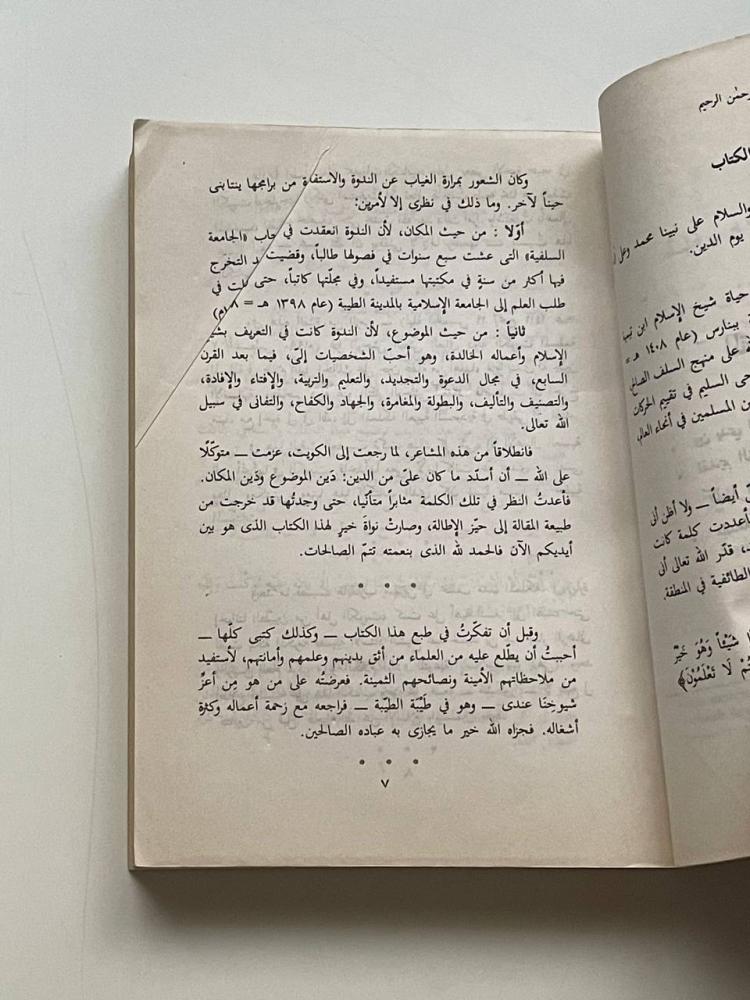 وكان الشعور بمرارة الغياب عن الندوة والاستفادة من برامجها ينتابنى
حيناً لآخر. وما ذلك في نظرى إلا لأمرين:
أوّلا : من حيث المكان، لأن الندوة انعقدت في «الجامعة
السلفية» التى عشت سبع سنوات في فصولها طالباً، وقضيت التخرج
فيها أكثر من سنةٍ في مكتبتها مستفيداً، وفي مجلّتها كاتباً، حتى في
طلب العلم إلى الجامعة الإسلامية بالمدينة الطيبة (عام ١٣٩٨ هـ =
ثانياً : من حيث الموضوع، لأن الندوة كانت في التعريف
الإسلام وأعماله الخالدة، وهو أحبّ الشخصيات إلىّ، فيما بعد القرن
السابع، في مجال الدعوة والتجديد، والتعليم والتربية، والإفتاء والإفادة،
والتصنيف والتأليف، والبطولة والمغامرة، والجهاد والكفاح، والتفانى في سبيل
الله تعالى.
فانطلاقاً من هذه المشاعر، لما رجعت إلى الكويت، عزمت — متوكّلًا
على الله — أن أسدّد ما كان علىّ من الدين: دَين الموضوع ودَين المكان.
فأعدتُ النظر في تلك الكلمة مثابراً متأنّيا، حتى وجدتُها قد خرجت من
طبيعة المقالة إلى حيّز الإطالة، وصارتْ نواةَ خيرٍ لهذا الكتاب الذى هو بين
أيديكم الآن فالحمد لله الذى بنعمته تتمّ الصالحات.
• • •
وقبل أن تفكّرتُ في طبع هذا الكتاب — وكذلك كتبى كلّها —
أحببتُ أن يطّلع عليه من العلماء من أثق بدينهم وعلمهم وأمانتهم، لأستفيد
من ملاحظاتهم الأمينة ونصائحهم الثمينة. فعرضتُه على من هو مِن أعزِّ
شيوخِنا عندى — وهو في طَيْبَة الطيّبة — فراجعه مع زحمة أعماله وكثرة
أشغاله. فجزاه الله خير ما يجازى به عباده الصالحين.
• • •
٧
الرحيم
الكتاب
والسلام على نبينا محمد وعلى
يوم الدين.
حياة شيخ الإسلام ابن
ببنارس (عام ١٤٠٨ هـ =
على منهج السلف
السليم في تقييم الحركات
المسلمين في أنحاء العالم
أيضاً — ولا أظن أنى
أعددت كلمة كانت
قدّر الله تعالى أن
الطائفية في المنطقة.
شَيْئاً وَهُوَ خَيْرٌ
لَا تَعْلَمُوْنَ﴾